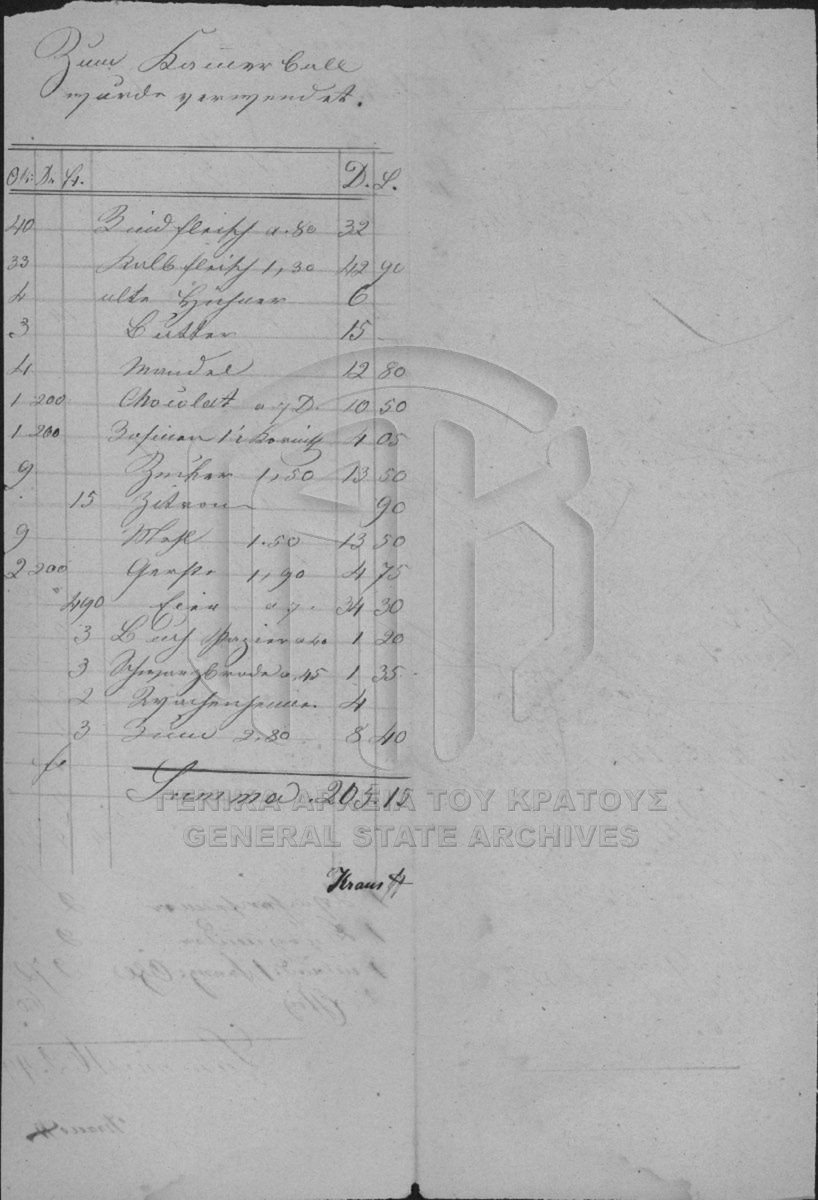 Zum Kammerball
wurde verwendet.
Ok: Dr. St. D. L.
40 Rindfleisch a. 80 32
33 Kalbfleisch 1,30 42 90
4 alte Hühner 6
3 Butter 15
4 Mandel 12 80
1 200 Chocolat a 7 D. 10 50
1 200 Rosinen 4 05
9 Zucker 1,50 13 50
15 Zitron 90
9 Mehl 1.50 13 50
2 200 Gerste 1,90 4 75
490 Eier a 7. 34 30
3 Buch Papier 1 20
3 Schwarzbrode a, 45 1 35
2 4
3 Rum 2.80 8 40
Summa. 205.15
ΓΕΝΙΚΑ ΑΡΧΕΙΑ ΤΟΥ ΚΡΑΤΟΥΣ
GENERAL STATE ARCHIVES
Kraus